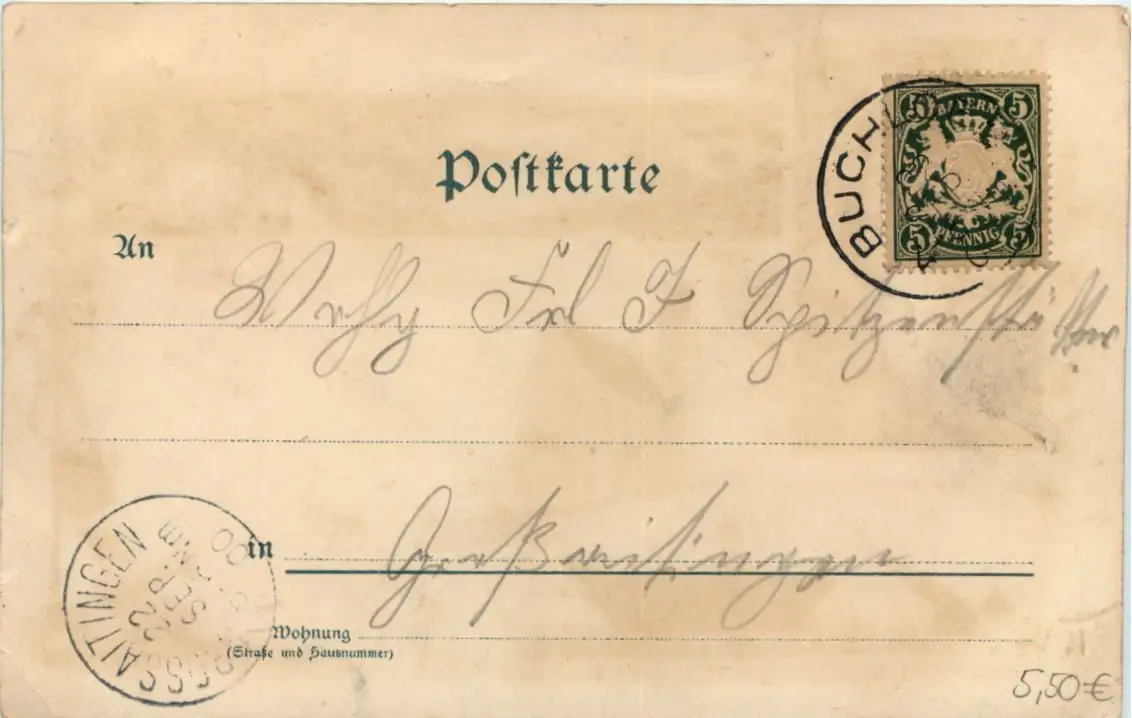 Postkarte
5 BAYERN 5
5 PFENNIG 5
BUCHLO
An
Frl J
Großaitingen
in
GROSSAITINGEN
22 SEP
00
Wohnung
(Straße und Hausnummer)
5,50€